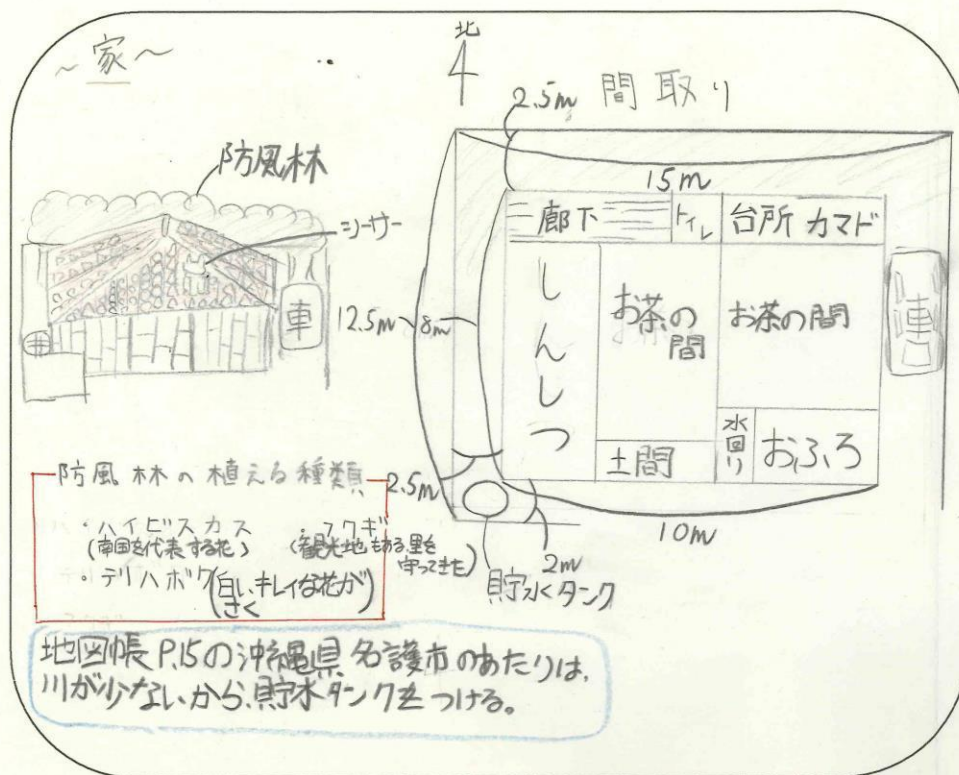 ~家~
北
4
2.5m 間取り
防風林
シーサー
車
井
15m
廊下 トイレ 台所 カマド
12.5m 8m
しんしつ
お茶の間
お茶の間
車
土間
水回り
おふろ
2.5m
2m
10m
貯水タンク
防風林の植える種類
・ハイビスカス ・フクギ
(南国を代表する花) (観光地もある。里を守ってきた)
・テリハボク(白い、キレイな花がさく)
地図帳P.15の沖縄県名護市のあたりは、
川が少ないから、貯水タンクをつける。